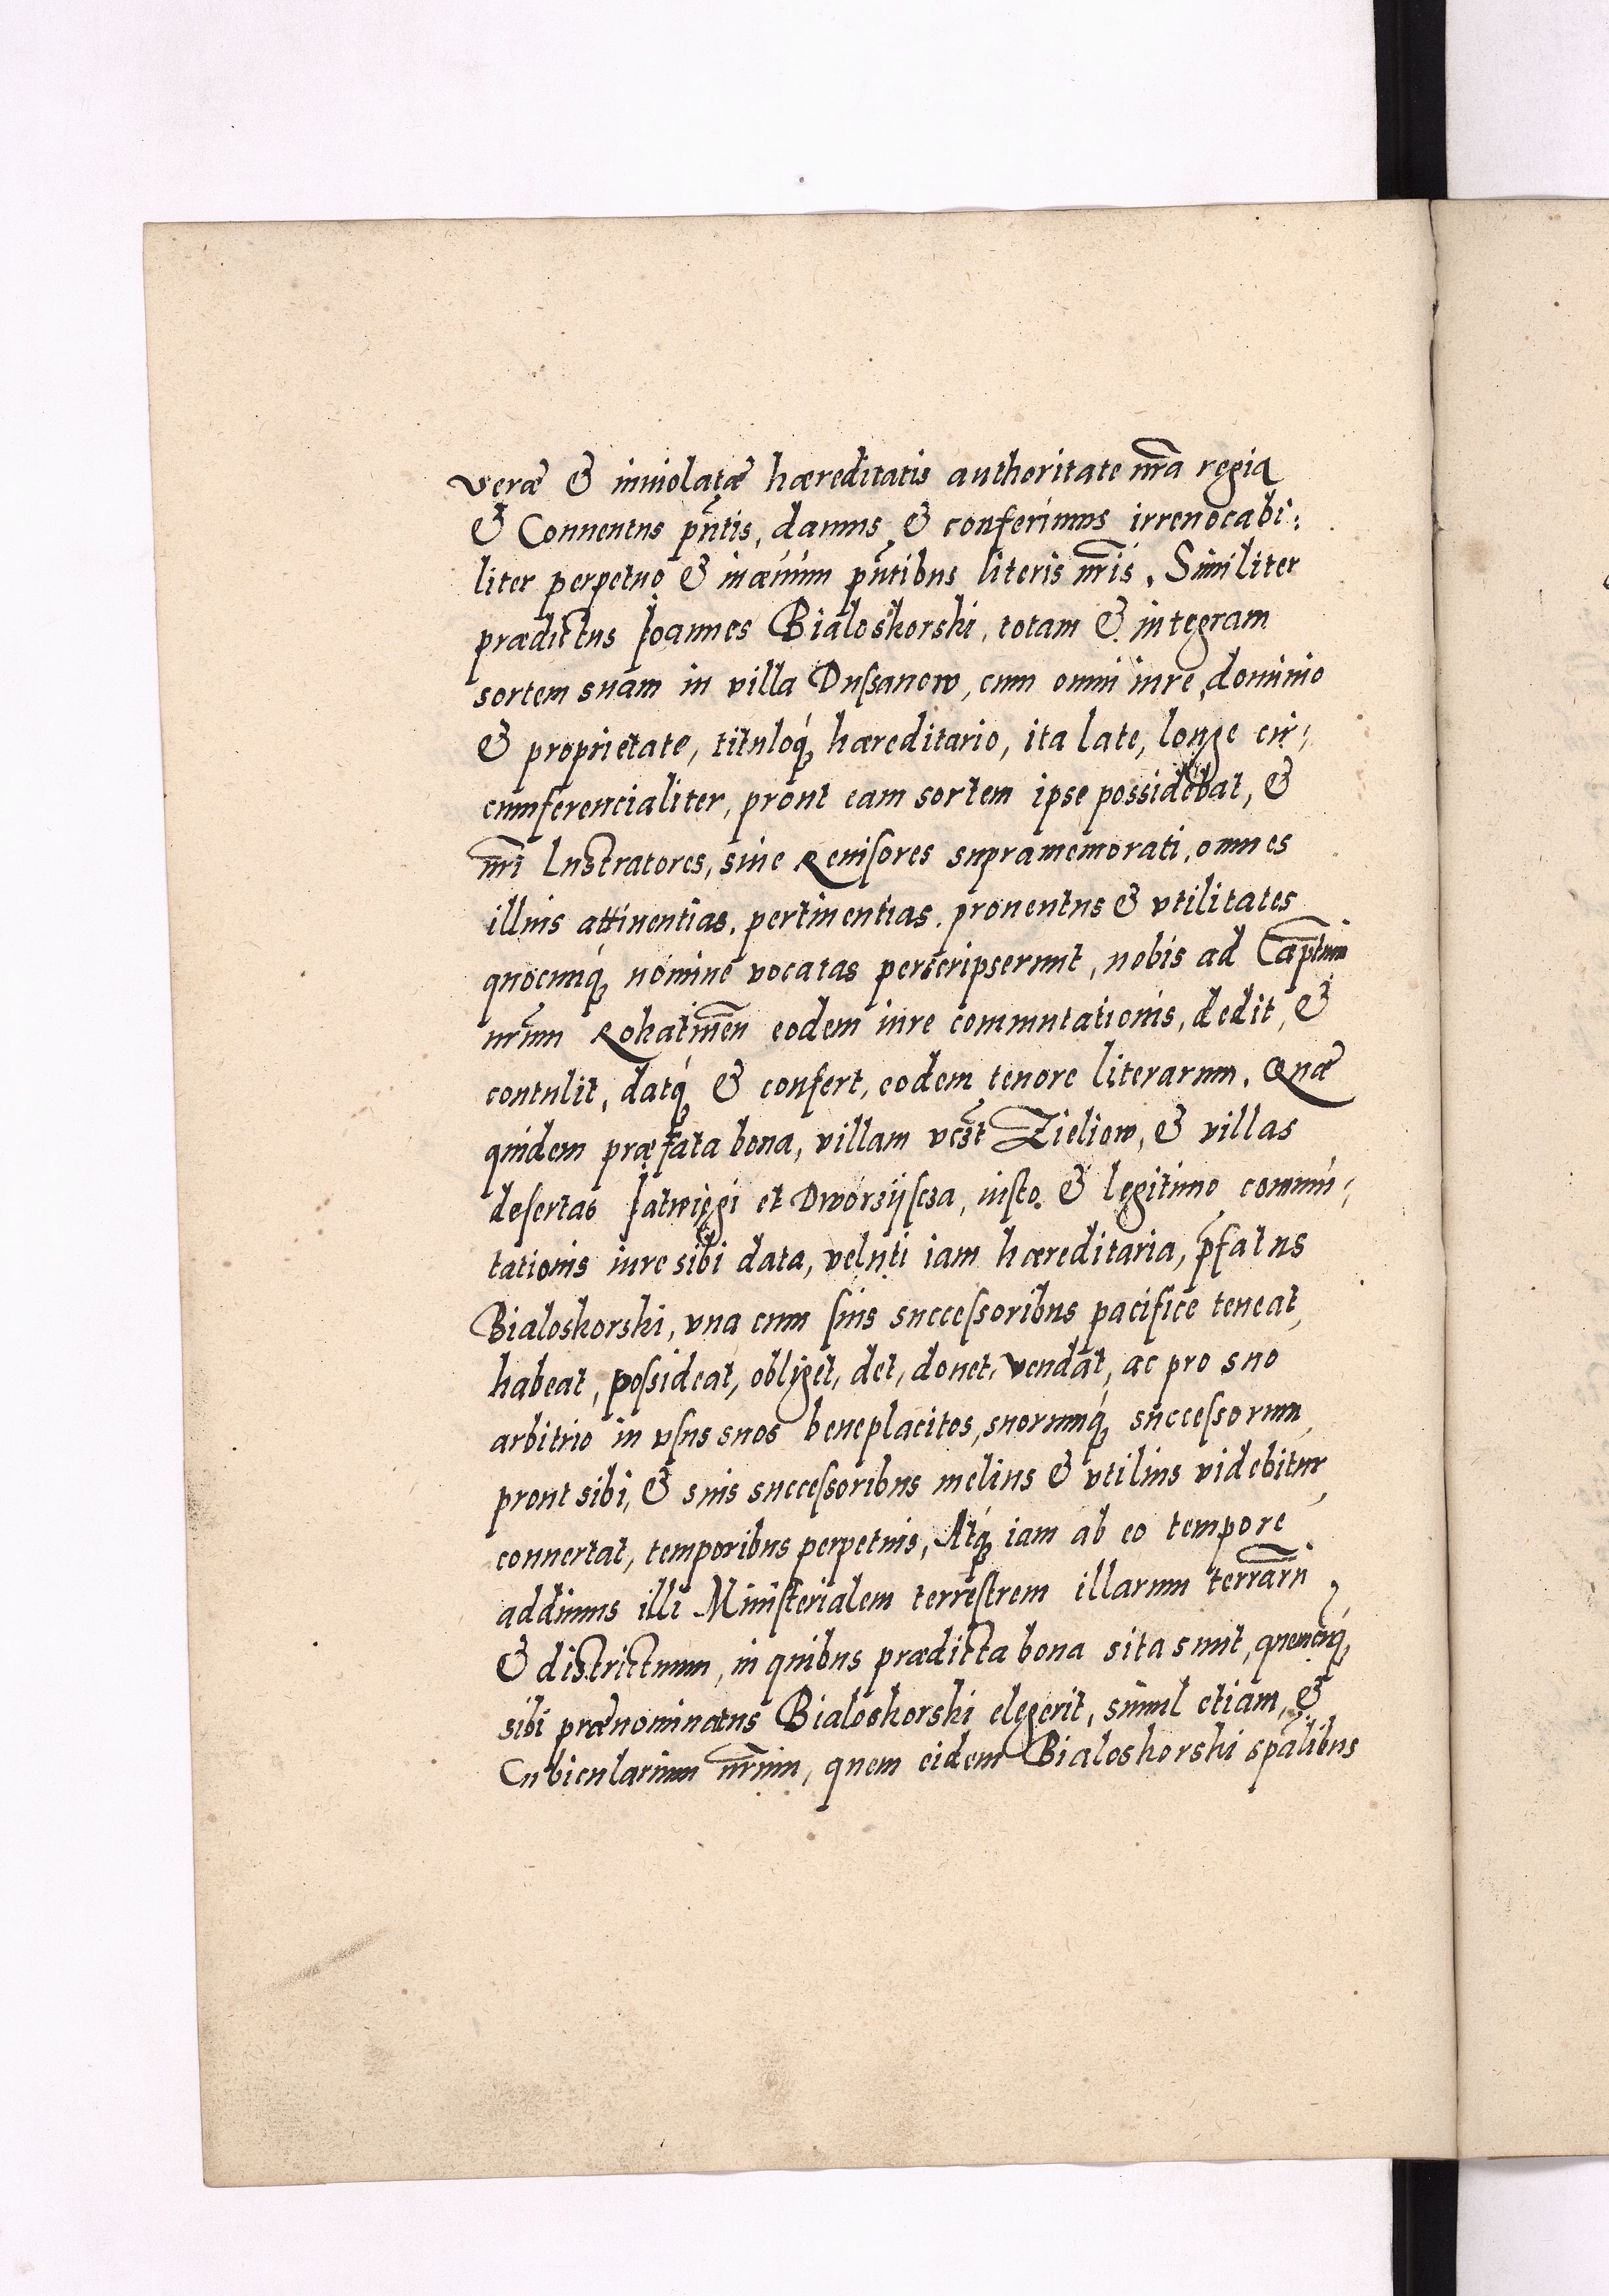 veræ & inuiolatæ hæreditatis authoritate nr̃a regia
& Conuentus pñtis, damus & conferimus irreuocabi:
liter perpetuo & inæuum pñtibus literis nr̃is. Similiter
prædictus Joannes Bialoskorski, totam & integram
sortem suam in villa Dussanow, cum omni iure, dominio
& proprietate, tituloq́ꝫ hæreditario, ita late, longe cir:
cumferencialiter, prout eam sortem ipse possidebat, &
nr̃i Lustratores, siue Reuisores supramemorati, omnes
illius attinentias, pertinentias, prouentus & vtilitates
quocunq́ꝫ nomine vocatas perscripserunt, nobis ad Cap̃tum
nr̃um Rohatineñ eodem iure commutationis, dedit, &
contulit, datq́ꝫ & confert, eodem tenore literarum. Quæ
quidem præfata bona, villam vcs̃t Zieliow, & villas
desertas Jatwięgi et Dworzÿscza, iusto & legitimo commu:
tationis iure sibi data, veluti iam hæreditaria, p̃fatus
Bialoskorski, vna cum suis successoribus pacifice teneat,
habeat, possideat, obliget, det, donet, vendat, ac pro suo
arbitrio in vsus suos beneplacitos, suorumq́ꝫ successorum,
prout sibi, & suis successoribus melius & vtilius videbitur,
conuertat, temporibus perpetuis, Atq́ꝫ iam ab eo tempore
addimus illi Ministerialem terrestrem illarum terrar̃u
& districtuum, in quibus prædicta bona sita sunt, quemcuq́ꝫ
sibi prænominatus Bialoskorski elegerit, simul etiam, &
Cubicularium nr̃um, quem eidem Bialoskorski sp̃alibus